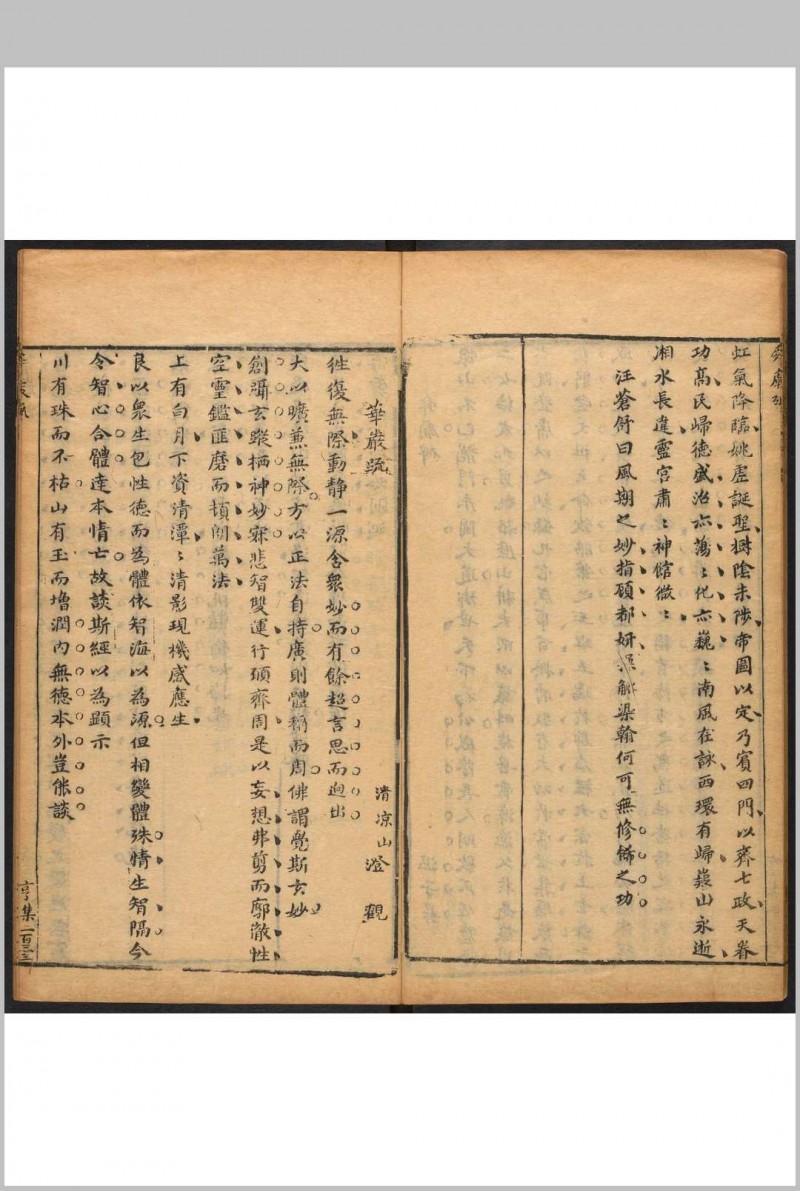 虹氣降臨姚虛誕聖樹陰未陟帝圖以定乃賓四門以齊七政天眷
功高民歸德盛治亦蕩﹕化亦巍﹕南風在詠西環有歸巖山永逝
湘水長違靈宮肅﹕神館微﹕
汪蒼舒曰風期之妙指顧都妍 觧染翰何可無修餙之功
華嚴疏
清凉山澄觀
徃復無際動静一源含衆妙而有餘超言思而迥出
大以曠蕪無際方以正法自持廣則體稱而周佛謂覺斯玄妙
剙躡玄蹤栖神妙寂悲智雙運行頭齊周是以妄想弗剪而廓徹性
空靈鑑匪磨而頓朗萬法
上有白月下資清潭﹕清影現機感應生
良以衆生包性德而為體依智海以為源但相變體殊情生智隔今
令智心合體達本情亡故談斯經以為顯示
川有珠而不枯山有玉而増潤内無德本外豈能談
亨集